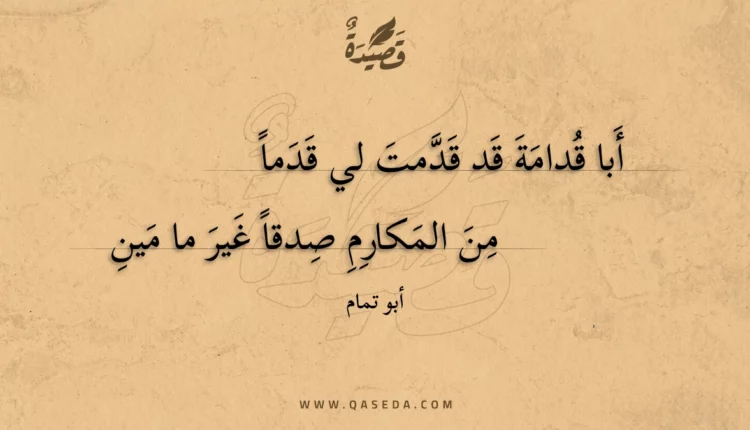 قَصِيدَةٌ
أَبا قُدامَةَ قَد قَدَّمتَ لي قَدَماً
مِنَ المَكارِمِ صِدقاً غَيرَ ما مَينِ
أبو تمام
WWW.QASEDA.COM